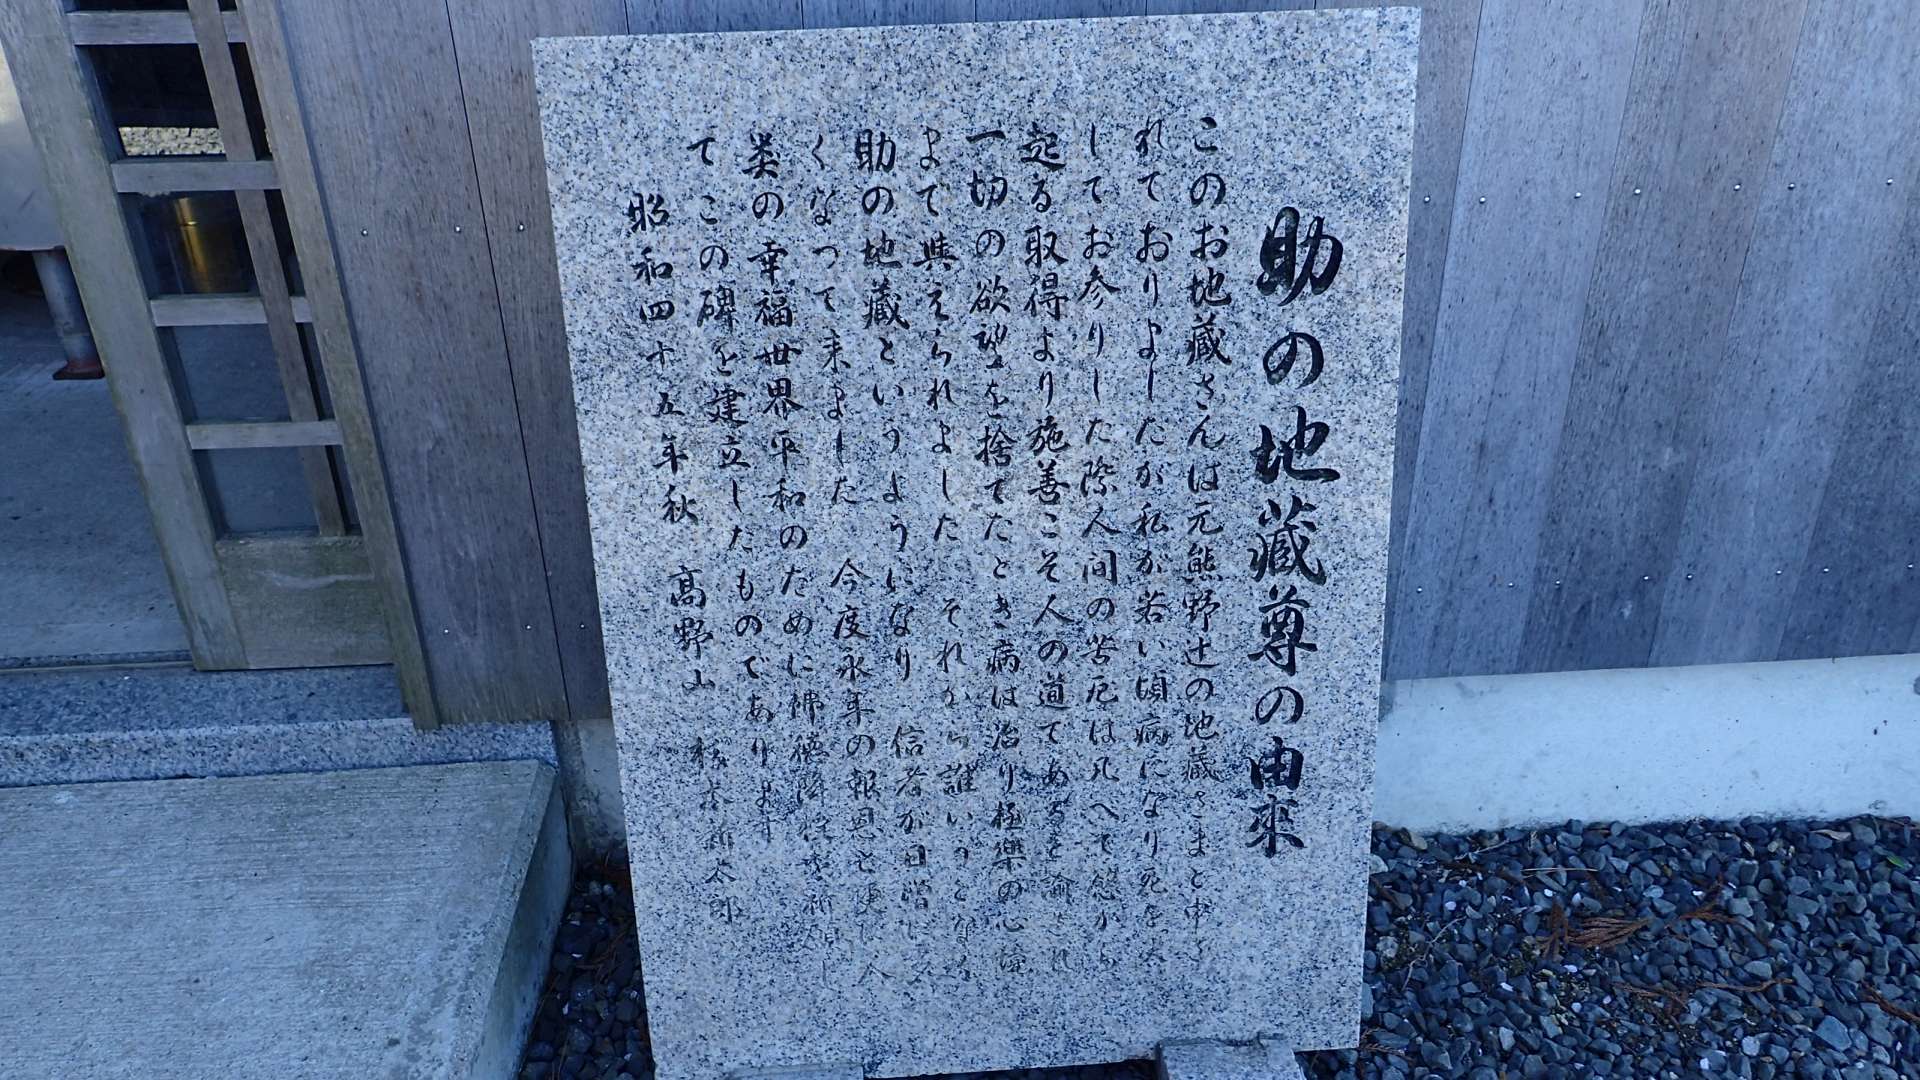 助の地蔵尊の由来
このお地蔵さんは元熊野辻の地蔵さまと申さ
れておりましたが私が若い頃病になり死を決
してお参りした際人間の苦厄は凡べて慾から
起る取得より施善こそ人の道てあると諭され
一切の欲望を捨てたとき病は治り極樂の心境
まで與えられました それから誰いうとなく
助の地蔵というようになり 信者が日増に多
くなって来ました 今度永年の報恩と更に人
类の幸福世界平和のために佛徳 祈願し
てこの碑を建立したものであります
昭和四十五年秋 高野山 太郎